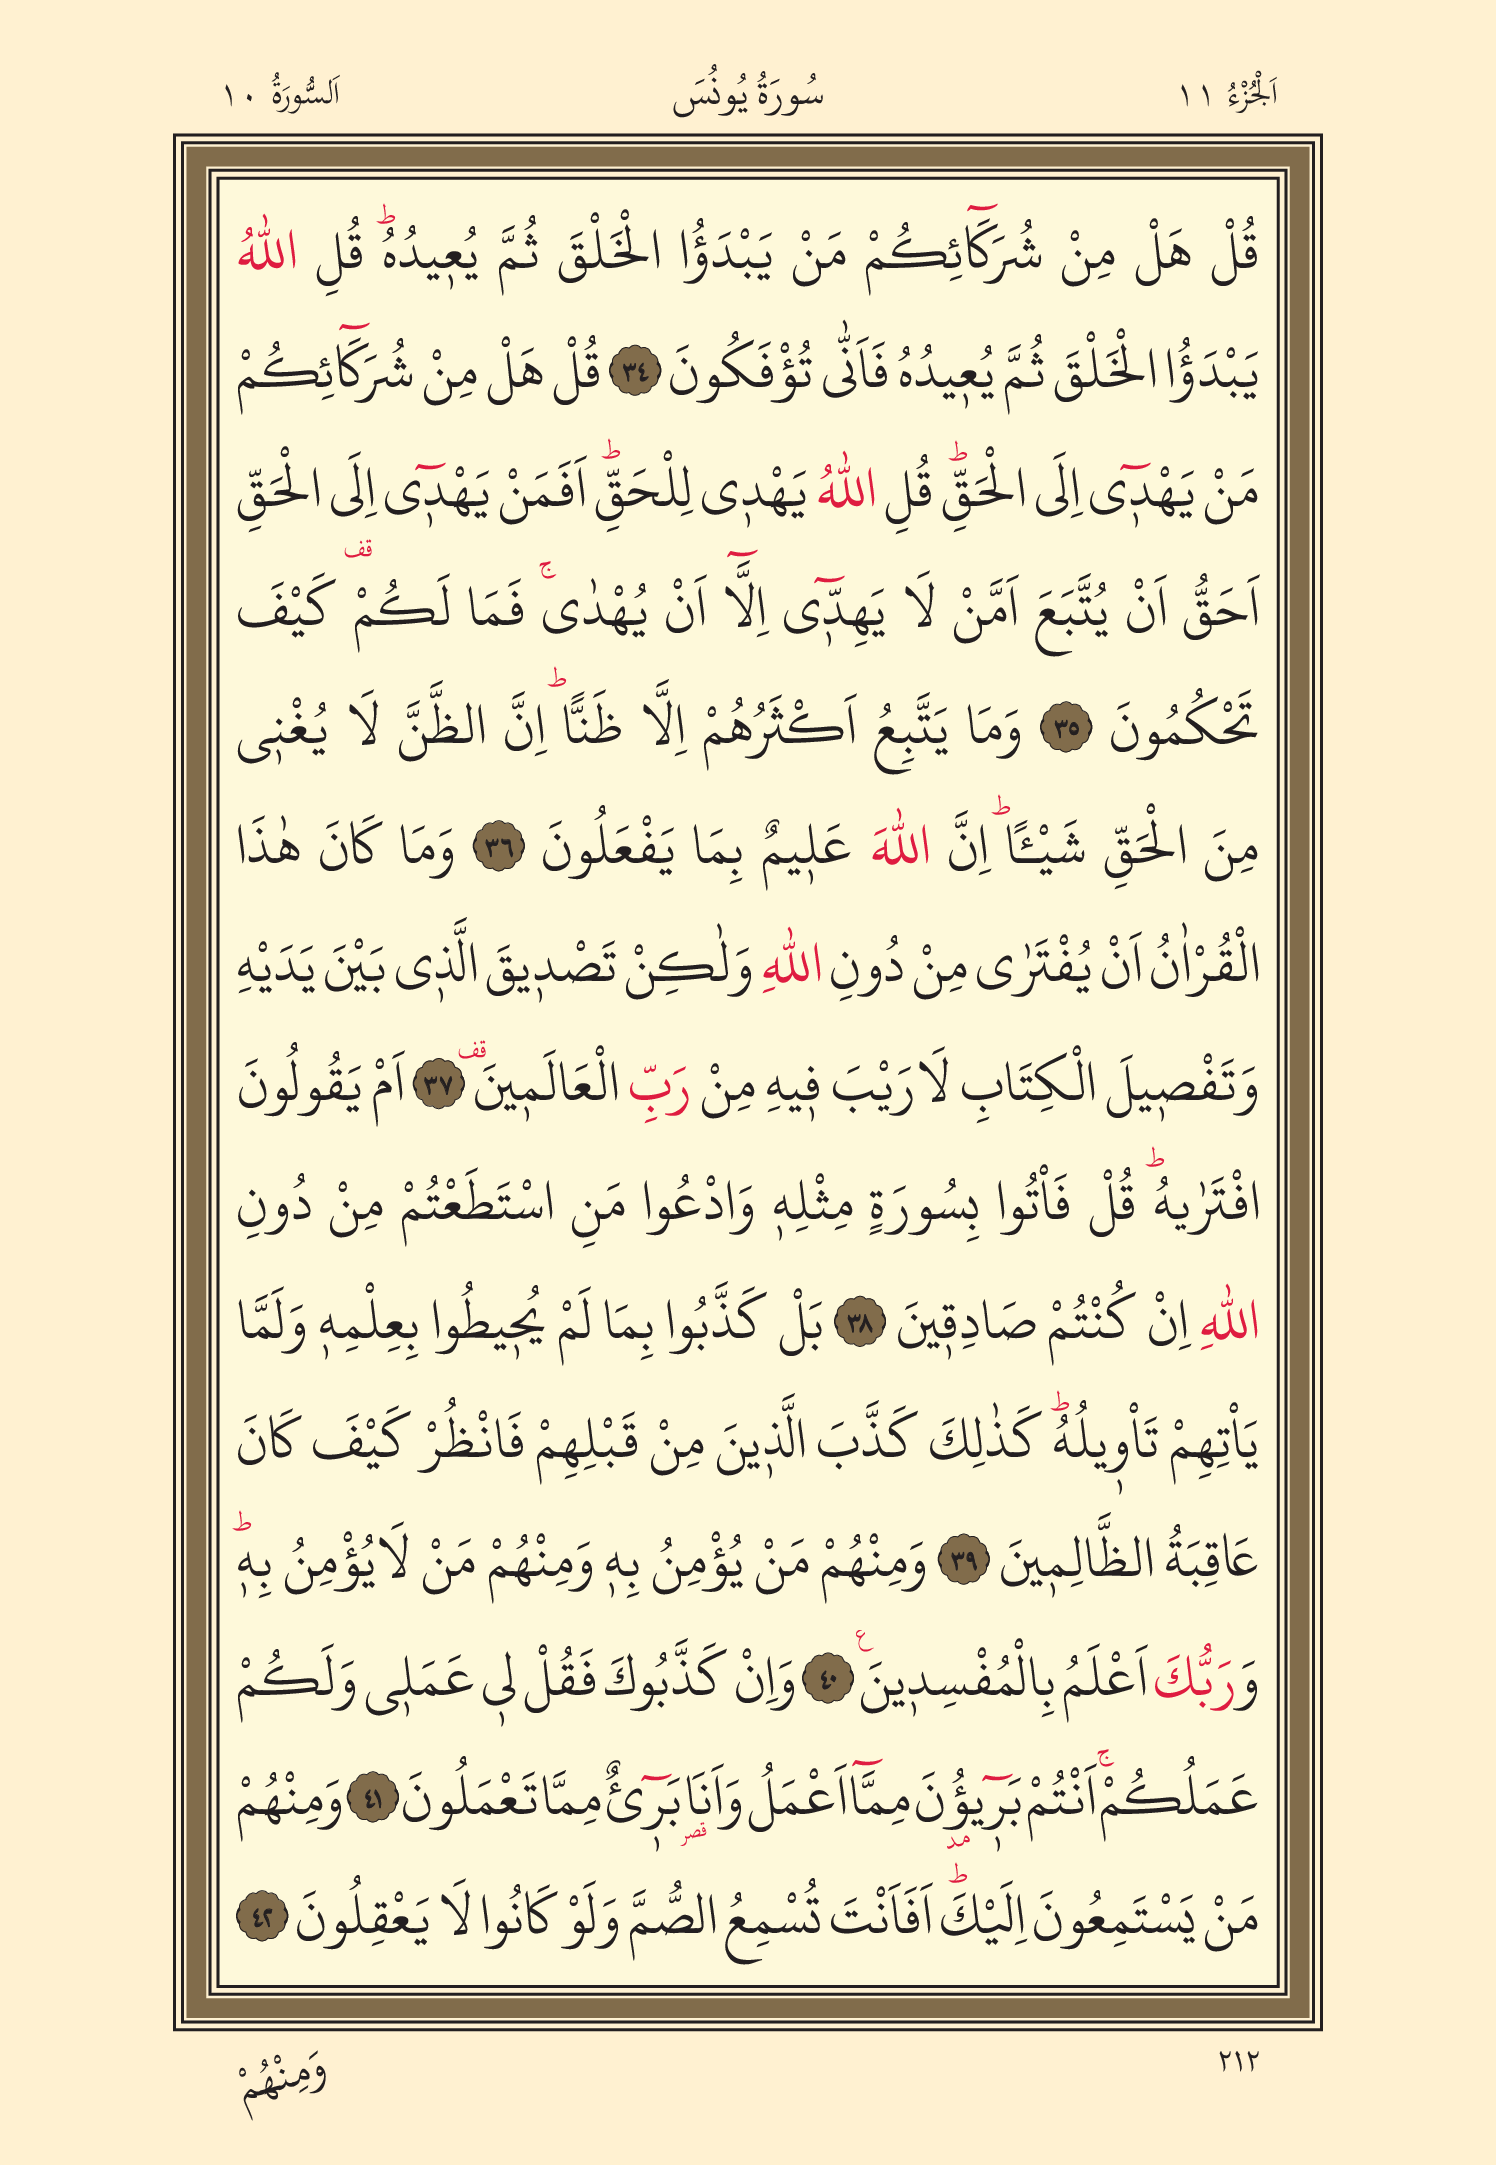 اَلْجُزْءُ ١١
سُورَةُ يُونُسَ
اَلسُّورَةُ ١٠
قُلْ هَلْ مِنْ شُرَكَٓائِكُمْ مَنْ يَبْدَؤُا الْخَلْقَ ثُمَّ يُع۪يدُهُۜ قُلِ اللّٰهُ
يَبْدَؤُا الْخَلْقَ ثُمَّ يُع۪يدُهُ فَاَنّٰى تُؤْفَكُونَ ﴿٣٤﴾ قُلْ هَلْ مِنْ شُرَكَٓائِكُمْ
مَنْ يَهْد۪ٓى اِلَى الْحَقِّۜ قُلِ اللّٰهُ يَهْد۪ى لِلْحَقِّۜ اَفَمَنْ يَهْد۪ٓى اِلَى الْحَقِّ
اَحَقُّ اَنْ يُتَّبَعَ اَمَّنْ لَا يَهِدّ۪ٓى اِلَّٓا اَنْ يُهْدٰىۚ فَمَا لَكُمْ قف كَيْفَ
تَحْكُمُونَ ﴿٣٥﴾ وَمَا يَتَّبِعُ اَكْثَرُهُمْ اِلَّا ظَنًّاۜ اِنَّ الظَّنَّ لَا يُغْن۪ى
مِنَ الْحَقِّ شَيْـًٔاۜ اِنَّ اللّٰهَ عَل۪يمٌ بِمَا يَفْعَلُونَ ﴿٣٦﴾ وَمَا كَانَ هٰذَا
الْقُرْاٰنُ اَنْ يُفْتَرٰى مِنْ دُونِ اللّٰهِ وَلٰكِنْ تَصْد۪يقَ الَّذ۪ى بَيْنَ يَدَيْهِ
وَتَفْص۪يلَ الْكِتَابِ لَا رَيْبَ ف۪يهِ مِنْ رَبِّ الْعَالَم۪ينَ قف ﴿٣٧﴾ اَمْ يَقُولُونَ
افْتَرٰيهُۜ قُلْ فَاْتُوا بِسُورَةٍ مِثْلِه۪ وَادْعُوا مَنِ اسْتَطَعْتُمْ مِنْ دُونِ
اللّٰهِ اِنْ كُنْتُمْ صَادِق۪ينَ ﴿٣٨﴾ بَلْ كَذَّبُوا بِمَا لَمْ يُح۪يطُوا بِعِلْمِه۪ وَلَمَّا
يَاْتِهِمْ تَاْو۪يلُهُۜ كَذٰلِكَ كَذَّبَ الَّذ۪ينَ مِنْ قَبْلِهِمْ فَانْظُرْ كَيْفَ كَانَ
عَاقِبَةُ الظَّالِم۪ينَ ﴿٣٩﴾ وَمِنْهُمْ مَنْ يُؤْمِنُ بِه۪ وَمِنْهُمْ مَنْ لَا يُؤْمِنُ بِه۪ۜ
وَرَبُّكَ اَعْلَمُ بِالْمُفْسِد۪ينَ ع ﴿٤٠﴾ وَاِنْ كَذَّبُوكَ فَقُلْ ل۪ي عَمَل۪ى وَلَكُمْ
عَمَلُكُمْۚ اَنْتُمْ بَر۪ٓيؤُ۫نَ مد مِمَّٓا اَعْمَلُ وَاَنَا۬ قصر بَر۪ٓئٌ مِمَّا تَعْمَلُونَ ﴿٤١﴾ وَمِنْهُمْ
مَنْ يَسْتَمِعُونَ اِلَيْكَۜ اَفَاَنْتَ تُسْمِعُ الصُّمَّ وَلَوْ كَانُوا لَا يَعْقِلُونَ ﴿٤٢﴾
٢١٢
وَمِنْهُمْ